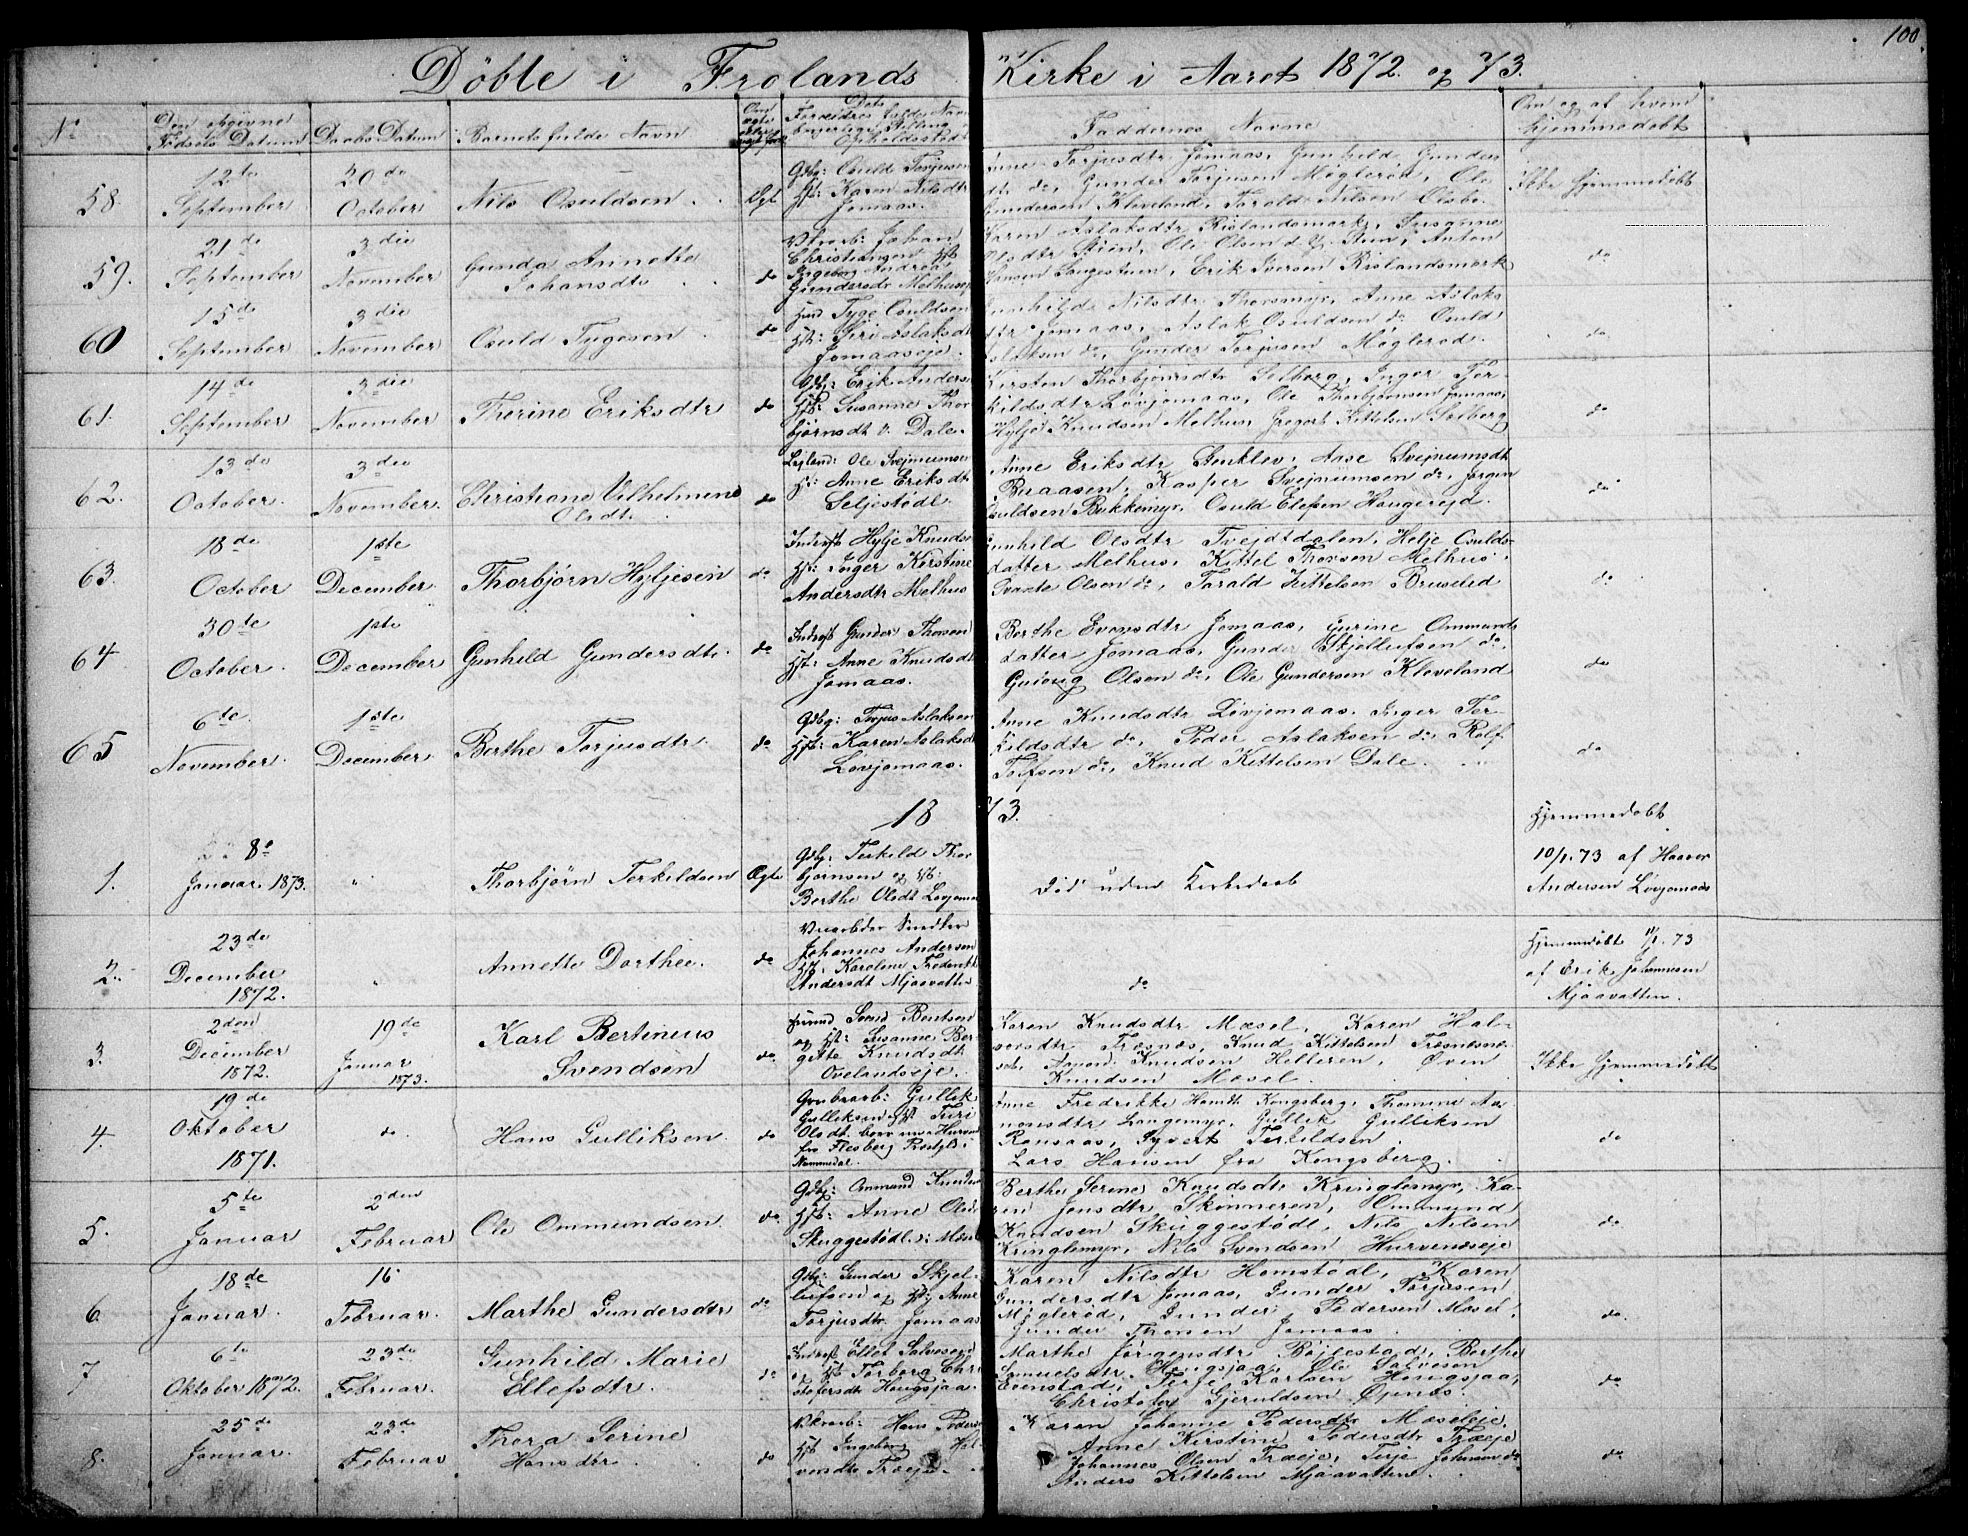 100.
Döbte i Frolands Kirke i Aaret 1872. og 73.
No
Fødsels Datum
Daabs Datum
Barnets fulde Navn
Faddernes Navne
Om og af hvem
hjemmedøbt
58.
12te
September
20de
October
Nils Osuldsen
Ægt
Gdbg: Osuld Torjusen
Hst: Karen Nilsdtr
Jomaas.
Anne Torjusdtr Jomaas, Gunhild Gunders
dtr do, Gunder Torjusen Møglerød, Ole
Gundersen Kleveland, Tarald Nilsen Osebo.
Ikke hjemmedøbt
59.
21de
September
3die
November
Gunda Annette
Johansdtr
do
Johan
Christiansen Hst
Ingeborg Andrea
Gundersdtr Melhus
Karen Aslaksdtr Rislandsmark, Susanne
Olsdtr Stien, Ole Olsen d. y. Stien, Anton
Hansen Langestuen, Erik Iversen Rislandsmark
do
60
15de
September
3die
November
Osuld Tygesen
do
Huud Tyge Osuldsen
Hst: Siri Aslaksdt
Jomaaseje.
Gunhilde Nilsdtr Thorsmyr, Anne Aslaks
dtr Jomaas, Aslak Osuldsen do, Osuld
Aslaksen do, Gunder Torjusen Møglerød.
do
61.
14de
September
3die
November
Therine Eriksdtr
do
Gdbg: Erik Anders
Hst: Susanne Thor
bjørnsdt v. Dale.
Kirsten Thorbjørnsdtr Solberg, Inger Ter-
kildsdtr Løvjomaas, Ole Thorbjørnsen Jomaas,
Hylje Knudsen Melhus, Gregert Kittelsen Solberg
do
62.
13de
October.
3die
November.
Christiane Vilhelmine
Olsdtr.
do
Ole Svejnumsen
Hst: Anne Eriksdt
Seljestødl.
Anne Eriksdtr Stenklev, Aase Svejnumsdt
Buaasen, Kasper Svejnumsen do, Jørgen
Osuldsen Bukkemyr, Osuld Elefsen Haugerejd.
do
63.
18de
October
1ste
December.
Thorbjørn Hyljesen
do
Inderst Hylje Knuds
Hst: Inger Kirstine
Andersdtr Melhus
Gunhild Olsdtr Tvejtdalen, Helje Osulds-
datter Melhus, Kittel Thorsen Melhus,
Svante Olsen do, Tarald Kittelsen Brusdal
do
64.
30te
October.
1ste
December
Gunhild Gundersdtr.
do
Inderst Gunder Thorsen
Hst: Anne Knudsdt
Jomaas.
Berthe Evensdtr Jomaas, Gurine Ommunds
datter Jomaas, Gunder Skjellufsen do,
Olsen do, Ole Gundersen Kleveland
do
65
6te
November.
1ste
December.
Berthe Torjusdtr.
do
Gdbg: Torjus Aslaksen
Hst: Karen Aslaksdt
Løvjomaas.
Anne Knudsdtr Løvjomaas, Inger Ter-
kildsdtr do, Peder Aslaksen do, Rolf
Tolfsen do, Knud Kittelsen Dale.
do
1873.
1.
8e
Januar 1873.
"
Thorbjørn Terkildsen
Ægte
Gdbg: Terkild Thor
bjørnsen og Hst:
Berthe Olsdt Løvjomaas
Død uden Kirkedaab
Hjemmedøbt
10/1. 73 af Haaver
Andersen Løvjomaas
2.
23de
December
1872.
"
Annette Dorthee.
do
Johannes Andersen
Hst: Karoline Frederikke
Andersdt Mjaavatten
do
Hjemmedøbt 11/1. 73
af Erik Johannesen
Mjaavatten.
3.
2den
December
1872.
19de
Januar
1873.
Karl Bertinius
Svendsen
do
Svend Bentsen
og Hst: Susanne Ber
gitte Knudsdt
Ovelandseje.
Karen Knudsdtr Mosel, Karen Hal-
vorsdtr Træsnes, Knud Kittelsen Træsnesne-
set, Aanon Knudsen Helleren, Øven
Knudsen Mosel.
Ikke hjemmedøbt
4
19de
Oktober
1871.
do.
Hans Gulliksen.
do
Grubearb: Gullik
Gulliksen Hst: Turi
Olsdt
fra Flesberg Prestgld i
Nummedal.
Anne Fredrikke Hansdt Kongsberg, Thomine Aa-
nonsdtr Langemyr, Gullik Gulliksen
Ranaas, Syvert Terkildsen
Lars Hansen fra Kongsberg.
do
5.
5te
Januar
2den
Februar
Ole Ommundsen.
do.
Gdbg: Ommund Knudsen
Hst: Anne Olsd
Skuggestødl
Berthe Serine Knudsdt Kringlemyr, Ka-
ren Jonsdtr Skinneren, Ommund
Knudsen Skuggestødl, Nils Nilsen
Kringlemyr, Nils Svendsen Hurveneseje
do
6.
18de
Januar.
16
Februar.
Marthe Gundersdtr
do
Gdbg: Gunder Skjel-
lufsen og Hst: Anne
Torjusdtr Jomaas
Karen Nilsdtr Homstødl, Karen
Gundersdtr Jomaas, Gunder Torjusen
Møglerød, Gunder Pedersen Mosel,
Gunder Thorsen Jomaas
do.
7
6te
Oktober 1872.
23de
Februar.
Gunhild Marie
Ellefsdtr.
do
Inderst Ellef Salvesen
og Hst Torborg Chri
stofersdt Hougsjaa
Marthe Jørgensdtr Bøilestad, Berthe
Samuelsdtr. Hougsjaa, Ole Salvesen
Evenstad, Terje Karlsen Hougsjaa,
Christofer Gjeruldsen Øynes.
do
8.
25de
Januar.
23de
Februar
Thora Serine
Hansdtr.
do
Hans Peders
Hst Ingeborg Hal-
vorsdtr Træeje.
Karen Johanne Pedersdtr Moseleje,
Anne Kirstine Pedersdtr Træeje
Johannes Olsen Træeje, Terje Johnsen do
Anders Kittelsen Mjaavatten.
do